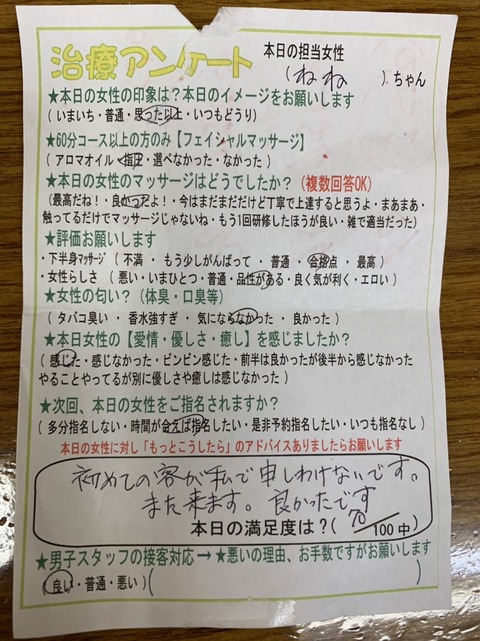 治療アンケート
本日の担当女性
(ねね)ちゃん
★本日の女性の印象は?本日のイメージをお願いします
(いまいち・普通・思った以上・いつもどうり)
★60分コース以上の方のみ【フェイシャルマッサージ】
(アロマオイル・指圧・選べなかった・なかった)
★本日の女性のマッサージはどうでしたか?(複数回答OK)
(最高だね!・良かったよ!・今はまだまだだけど丁寧で上達すると思うよ・まあまあ・
触ってるだけでマッサージじゃないね・もう1回研修したほうが良い・雑で適当だった)
★評価お願いします
・下半身マッサージ(不満・もう少しがんばって・普通・合格点・最高)
・女性らしさ(悪い・いまひとつ・普通・品性がある・良く気が利く・エロい)
★女性の匂い?(体臭・口臭等)
(タバコ臭い・香水強すぎ・気にならなかった・良かった)
★本日女性の【愛情・優しさ・癒し】を感じましたか?
(感じた・感じなかった・ビンビン感じた・前半は良かったが後半から感じなかった
やることやってるが別に優しさや癒しは感じなかった)
★次回、本日の女性をご指名されますか?
(多分指名しない・時間が合えば指名したい・是非予約指名したい・いつも指名なし)
本日の女性に対し「もっとこうしたら」のアドバイスありましたらお願いします
初めての客が私で申しわけないです。
また来ます。良かったです
本日の満足度は?(70/100中)
★男子スタッフの接客対応→★悪いの理由、お手数ですがお願いします
(良い・普通・悪い)( )